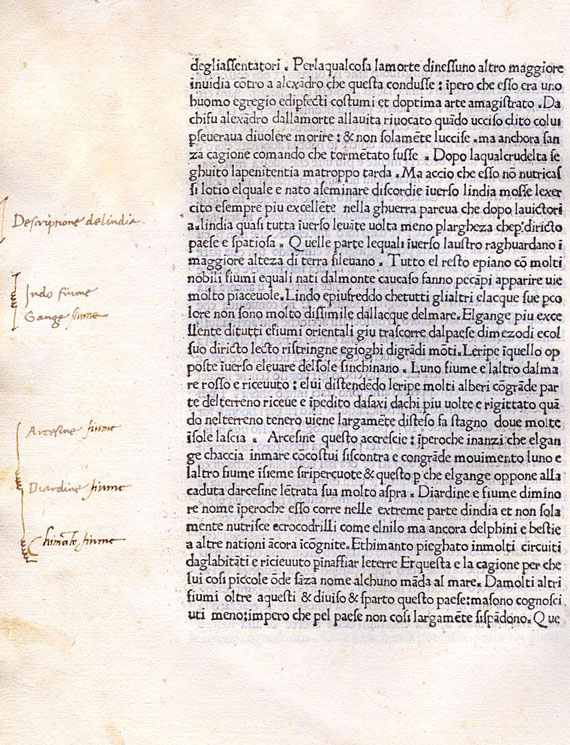 degliassentatori . Perlaqualcosa lamorte dinessuno altro maggiore
inuidia cōtro a alexādro che questa condusse : īpero che esso era uno
huomo egregio edipfecti costumi et doptima arte amagistrato . Da
chifu alexādro dallamorte allauita riuocato quādo ucciso clito colui
pseueraua diuolere morire : & non solamēte luccise . ma anchora san
za cagione comando che tormētato fusse . Dopo laqualcrudelta se
ghuito lapenitentia matroppo tarda . Ma accio che esso nō nutricas
si lotio elquale e nato aseminare discordie īuerso lindia mosse lexer
cito sempre piu excellēte nella ghuerra pareua che dopo lauictori
a . lindia quasi tutta īuerso leuāte uolta meno plargheza chep' diricto
paese e spatiosa . Quelle parte lequali īuerso laustro raghuardano ī
maggiore alteza di terra sileuano . Tutto el resto epiano cō molti
nobili fiumi equali nati dalmonte caucaso fanno pcāpi apparire uie
molto piaceuole . Lindo epiufreddo chetutti glialtri elacque sue pco
lore non sono molto dissimile dallacque delmare . Elgange piu exce
llente ditutti efiumi orientali giu trascorre dalpaese dimezodi ecol
suo diricto lecto ristringne egioghi digrādi mōti . Leripe īquello op
poste īuerso eleuare delsole sinchinano . Luno fiume e laltro dalma
re rosso e riceuuto : elui distendedo leripe molti alberi cōgrāde par
te delterreno riceue e īpedito dasaxi dachi piu uolte e rigittato quā
do nelterreno tenero uiene largamēte disteso fa stagno doue molte
īsole lascia . Arcesine questo accrescie : īperoche inanzi che elgan
ge chaccia inmare cocostui siscontra e congrāde mouimento luno e
laltro fiume īsieme siripercuote & questo p che elgange oppone alla
caduta darcesine lētrata sua molto aspra . Diardine e fiume dimino
re nome īperoche esso corre nelle extreme parte dindia et non sola
mente nutrisce ecrocodrilli come elnilo ma ancora delphini e bestie
a altre nationi ācora īcōgnite . Ethimanto pieghato inmolti circuiti
daglabitāti e ricieuuto pinaffiar leterre Erquesta e la cagione per che
lui cosi piccole ōde sāza nome alchuno māda al mare . Damolti altri
fiumi oltre aquesti & diuiso & sparto questo paese : masono cognosci
uti meno : impero che pel paese non cosi largamēte sispādono . Que
Descriptione delindia
Indo fiume
Gange fiume
Arcesine fiume
Diardine fiume